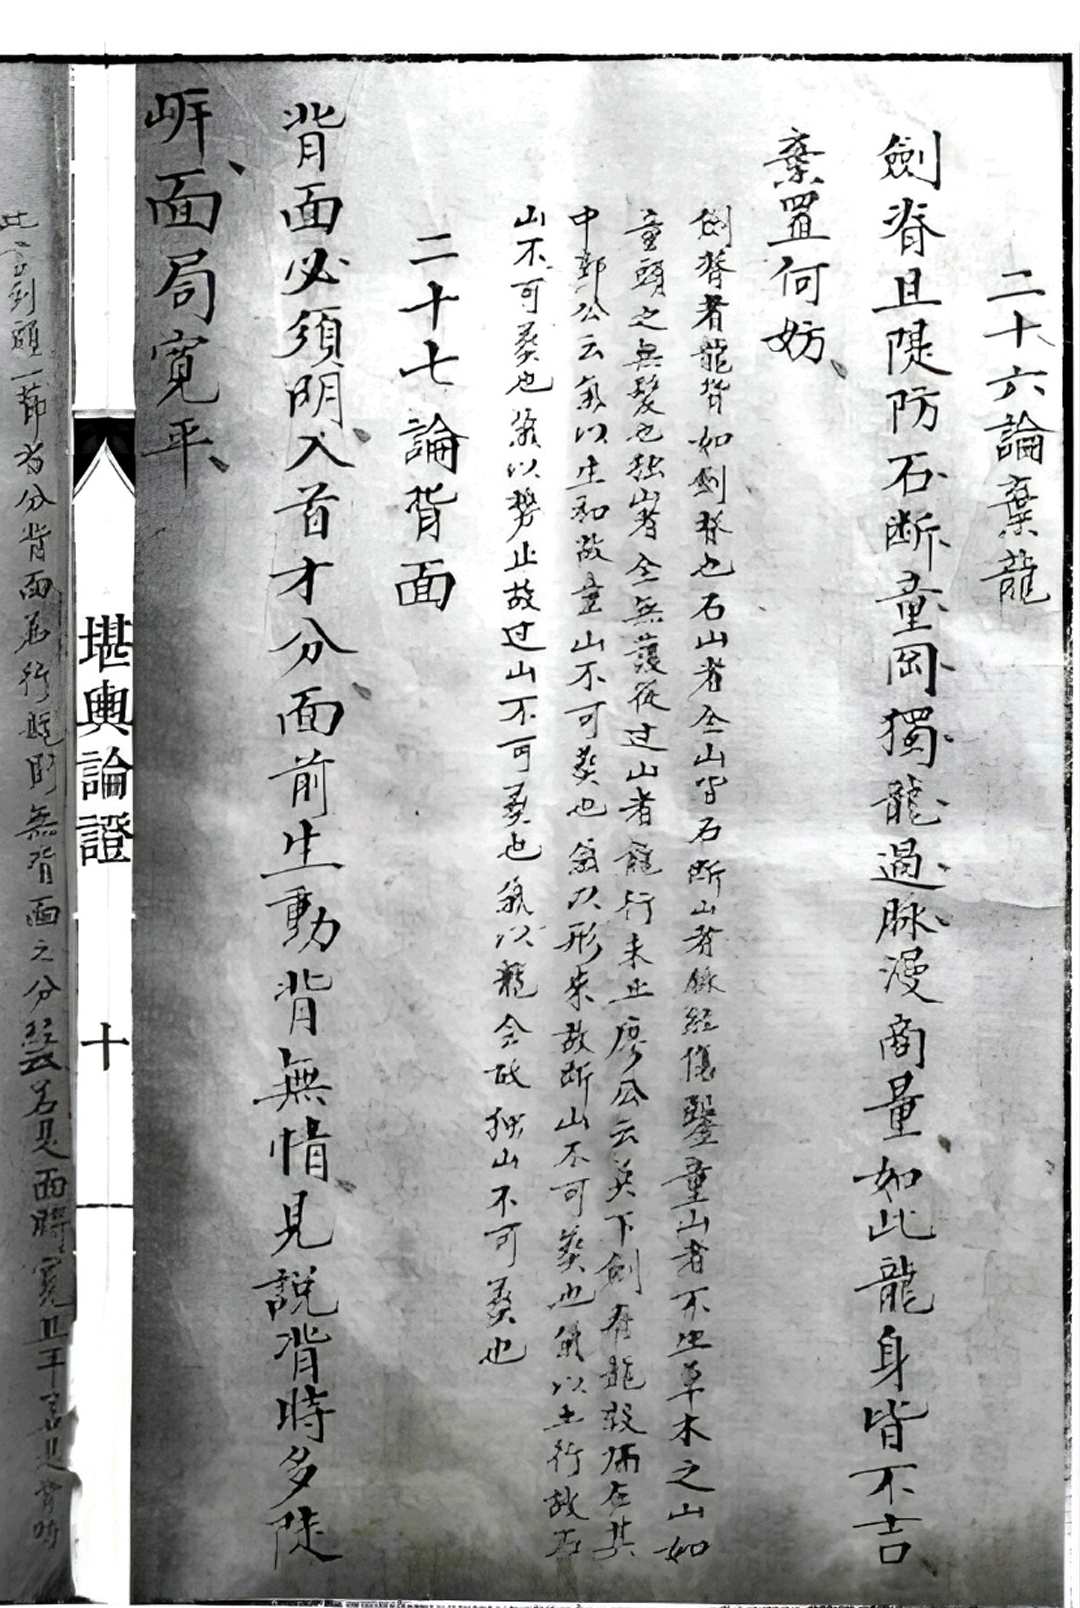 二十六論棄龍
劍脊且隄防石断童岡獨龍過脉漫商量如此龍身皆不吉
棄置何妨
劍脊者龍背如劍脊也石山者全山皆石断山者脉经傷鑿童山者不生草木之山如
童頭之無髮也独山者全無護從过山者龍行未止廖公云莫下劍脊龍殺師在其
中郭公云氣以生和故童山不可葬也氣以形來故断山不可葬也氣以土行故石
山不可葬也氣以势止故过山不可葬也氣以龍会故独山不可葬也
二十七論背面
背面必須明入首才分面前生動背無情見説背時多陡
岍面局寬平
堪輿論證
十
此言到頭一節為分背面若行龍則無背面之分经云若是面時寬且平若是背時